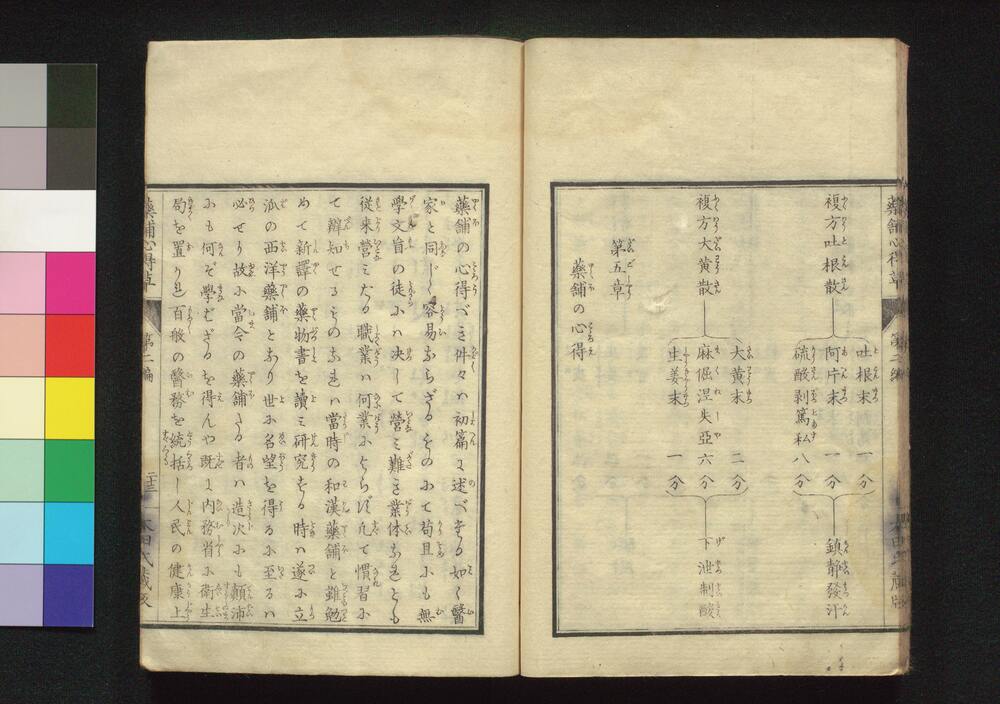 藥舗心得草
第二編
複方吐根散
吐根末 一分
阿片末 一分
硫酸剥篤私 八分
鎮静發汗
複方大黄散
大黄末 二分
麻倔涅失亞 六分
生姜末 一分
下泄制酸
第五章
藥舗の心得
藥舗の心得べき件々ハ初篇に述べする如く醫
家と同じく容易ならざるものにて苟且にも無
學文盲の徒にハ决して營ミ難き業体なれども
従来營ミたる職業ハ何業によらず凡て慣習に
て辯知せるものなれハ當時の和漢藥舗と雖勉
めて新譯の藥物書を讀ミ研究する時ハ遂に立
派の西洋藥舗となり世に名望を得るに至るハ
必せり故に當今の藥舗たる者ハ造次にも顛沛
にも何ぞ學ばざるを得んや既に内務省に衛生
局を置かれ百般の醫務を統括し人民の健康上
藥舗心得草
第二編
二十三